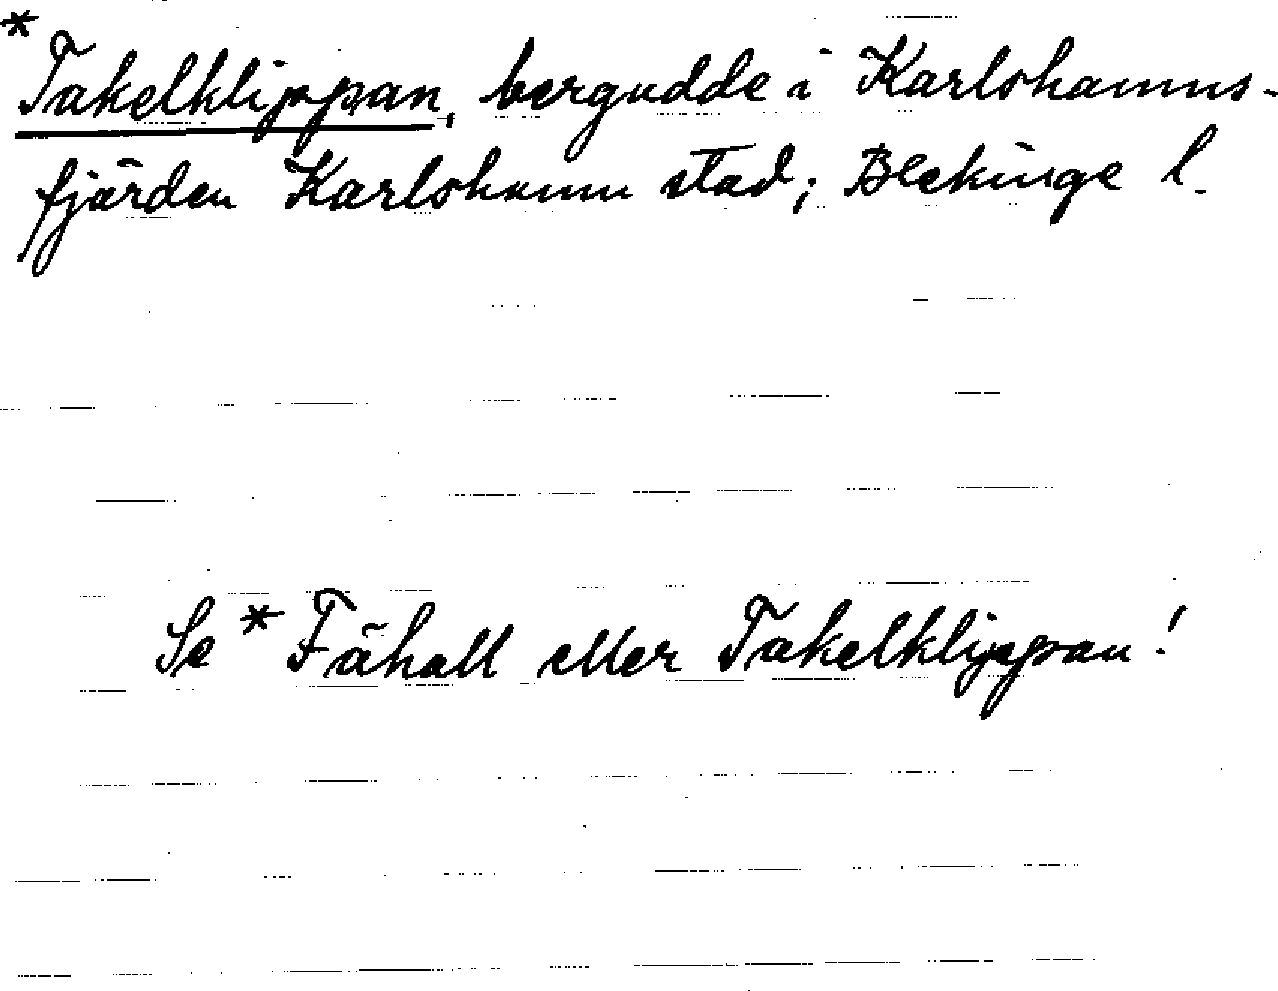 * Takelklippan, bergudde i Karlshamns-
fjärden Karlshamn stad; Blekinge l.
Se * Fähall eller Takelklippan!